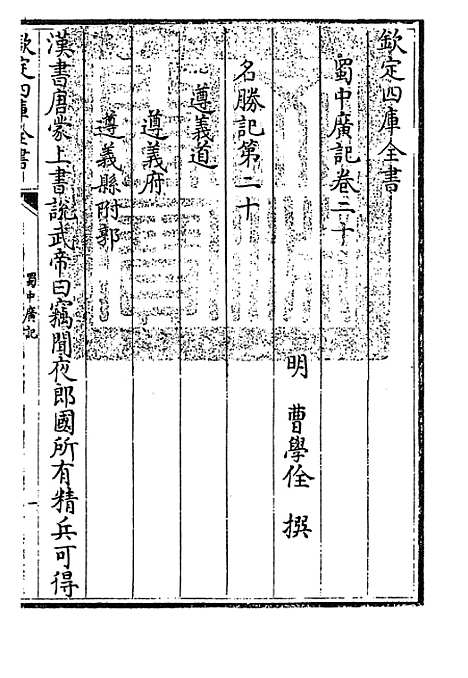 欽定四庫全書
蜀中廣記卷二十
明 曹學佺 撰
名勝記第二十
遵義道
遵義府
遵義縣附郭
漢書唐蒙上書說武帝曰竊聞夜郎國所有精兵可得
欽定四庫全書
蜀中廣記
一